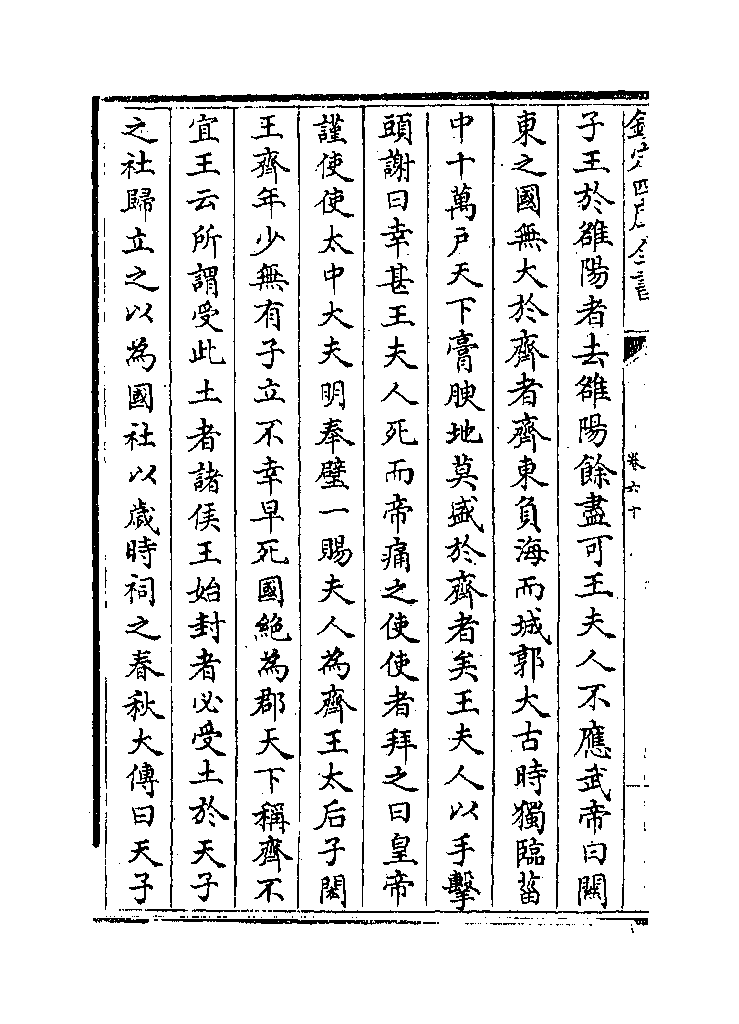 欽定四庫全書
卷六十
子王於雒陽者去雒陽餘盡可王夫人不應武帝曰關
東之國無大於齊者齊東負海而城郭大古時獨臨菑
中十萬户天下膏腴地莫盛於齊者矣王夫人以手擊
頭謝曰幸甚王夫人死而帝痛之使使者拜之曰皇帝
謹使使太中大夫明奉璧一賜夫人為齊王太后子閎
王齊年少無有子立不幸早死國絶為郡天下稱齊不
宜王云所謂受此土者諸侯王始封者必受土於天子
之社歸立之以為國社以歲時祠之春秋大傳曰天子